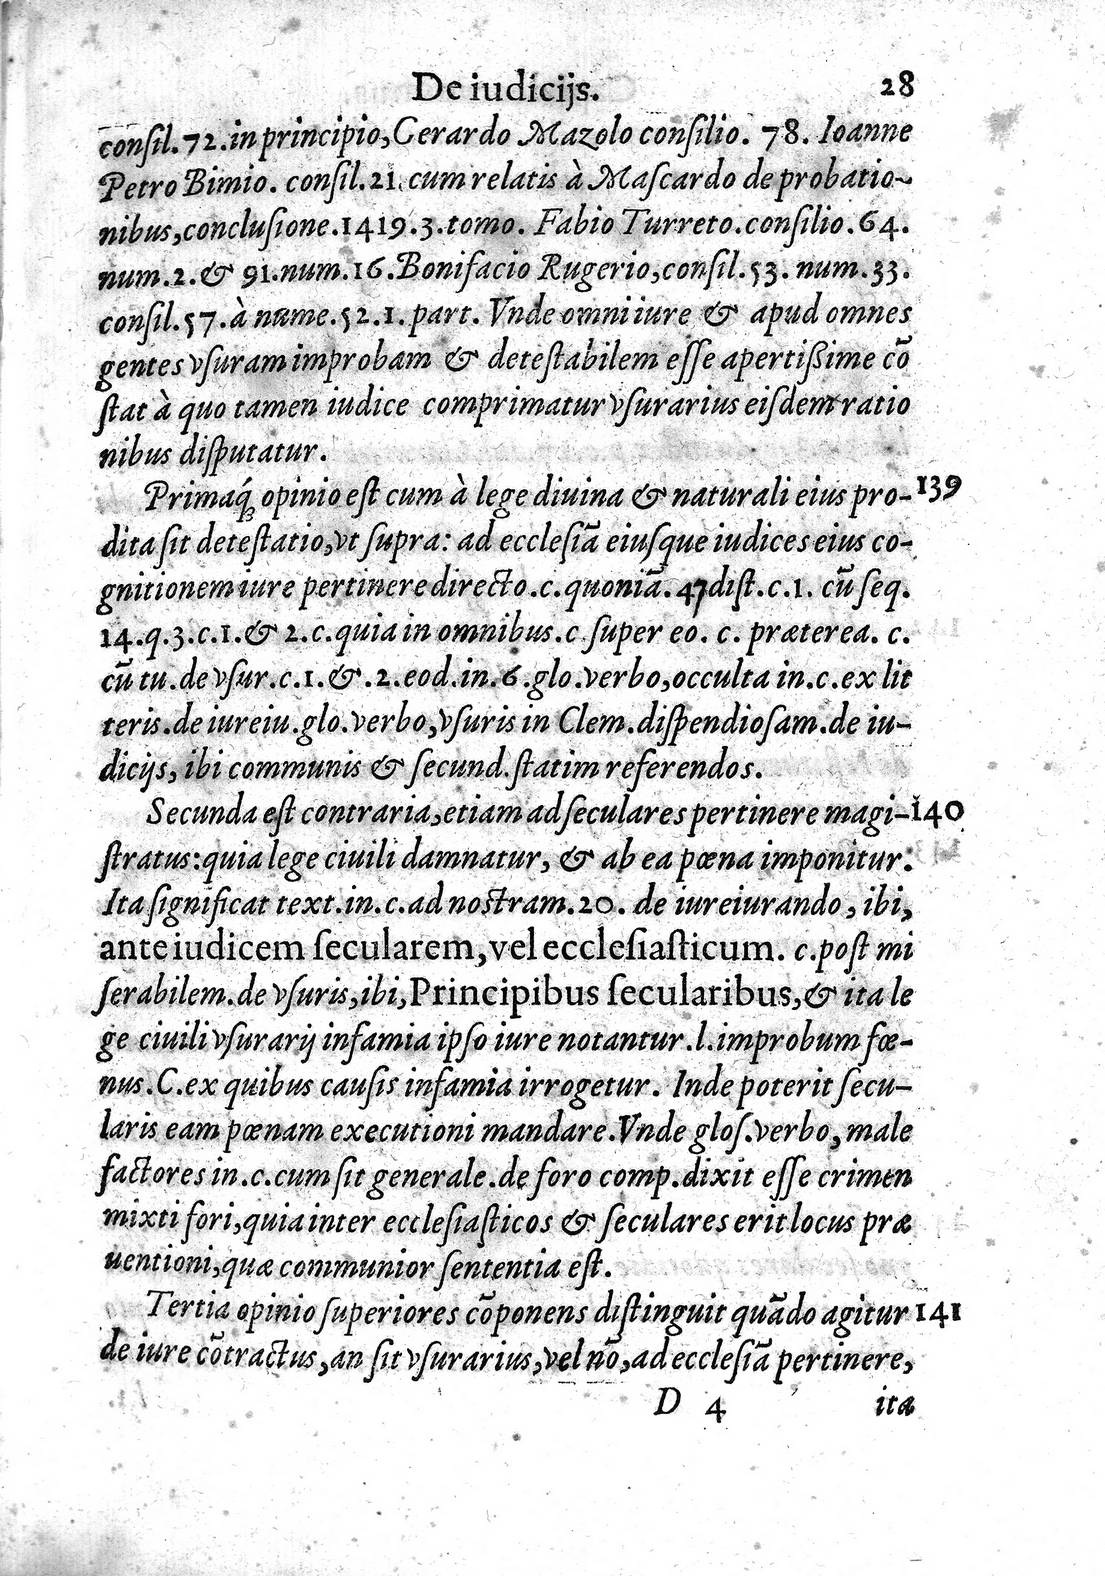 De iudicijs. 28
conſil.72.in principio,Gerardo Mazolo conſilio. 78. Ioanne
Petro Bimio. conſil.21.cum relatis à Maſcardo de probatio-
nibus,concluſione.1419.3.tomo. Fabio Turreto.conſilio.64.
num.2.& 91.num.16.Bonifacio Rugerio,conſil.53. num.33.
conſil.57.à nume.52.1.part. Vnde omni iure & apud omnes
gentes vſuram improbam & deteſtabilem eſſe apertißime cõ
ſtat à quo tamen iudice comprimatur vſurarius eiſdem ratio
nibus diſputatur.
Primaq́; opinio eſt cum à lege diuina & naturali eius pro- 139
dita ſit deteſtatio,vt ſupra: ad eccleſiã eiuſque iudices eius co-
gnitionem iure pertinere directo.c.quoniã.47diſt.c.1. cũ ſeq.
14.q.3.c.1.& 2.c.quia in omnibus.c.ſuper eo. c. præterea. c.
cũ tu.de vſur.c.1.&.2.eod.in.6.glo.verbo,occulta in.c.ex lit
teris.de iureiu.glo.verbo,vſuris in Clem.diſpendioſam.de iu-
dicijs, ibi communis & ſecund.ſtatim referendos.
Secunda eſt contraria,etiam ad ſeculares pertinere magi- 140
ſtratus:quia lege ciuili damnatur, & ab ea pœna imponitur.
Ita ſignificat text.in.c.ad noſtram.20. de iureiurando, ibi,
ante iudicem ſecularem,vel eccleſiaſticum. c.poſt mi
ſerabilem.de vſuris,ibi,Principibus ſecularibus,& ita le
ge ciuili vſurarij infamia ipſo iure notantur.l.improbum fœ-
nus.C.ex quibus cauſis infamia irrogetur. Inde poterit ſecu-
laris eam pœnam executioni mandare.Vnde gloſ.verbo,male
factores in.c.cum ſit generale.de foro comp.dixit eſſe crimen
mixti fori,quia inter eccleſiaſticos & ſeculares erit locus præ
uentioni,quæ communior ſententia eſt.
Tertia opinio ſuperiores cõponens diſtinguit quãdo agitur 141
de iure cõtractus,an ſit vſurarius,vel nõ,ad eccleſiã pertinere,
D 4 ita